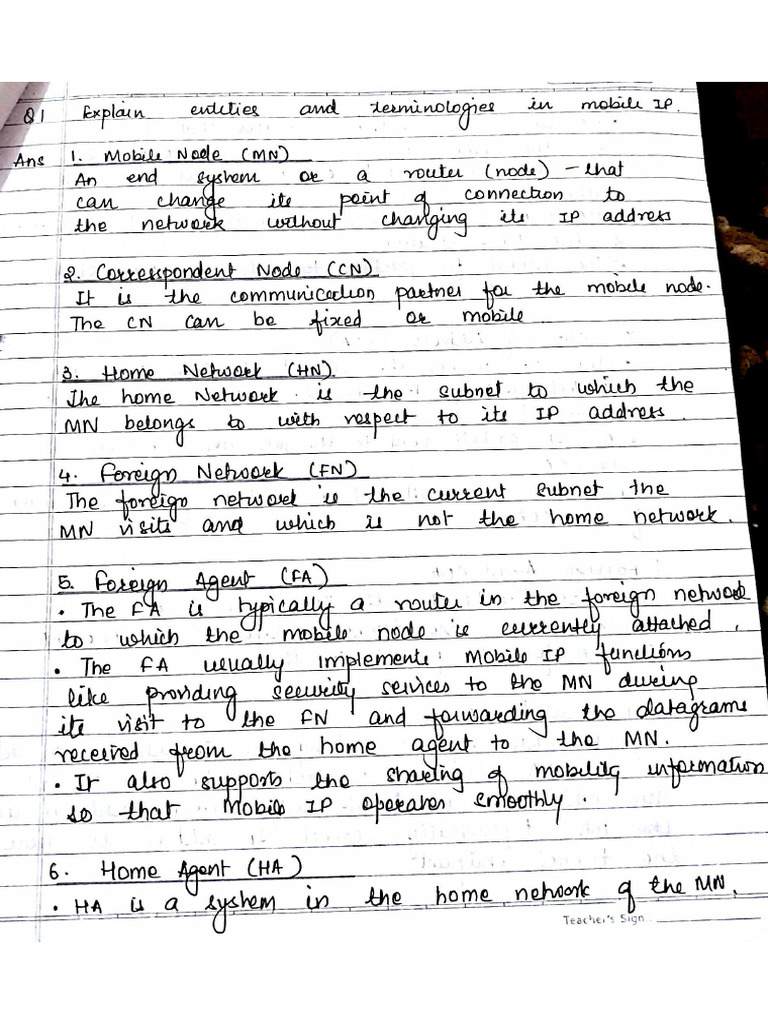 Q1 Explain entities and terminologies in mobile IP.
Ans 1. Mobile Node (MN)
An end system or a router (node) - that
can change its point of connection to
the network without changing its IP address
2. Correspondent Node (CN)
It is the communication partner for the mobile node.
The CN can be fixed or mobile
3. Home Network (HN)
The home Network is the subnet to which the
MN belongs to with respect to its IP address.
4. Foreign Network (FN)
The foreign network is the current subnet the
MN visits and which is not the home network.
5. Foreign Agent (FA)
• The FA is typically a router in the foreign network
to which the mobile node is currently attached.
• The FA usually implements Mobile IP functions
like providing security services to the MN during
its visit to the FN and forwarding the datagrams
received from the home agent to the MN.
• It also supports the sharing of mobility information
so that Mobile IP operates smoothly.
6. Home Agent (HA)
• HA is a system in the home network of the MN.
Teacher's Sign